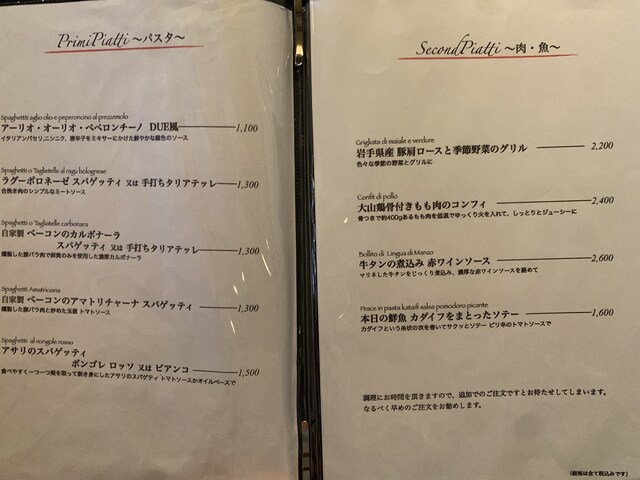 PrimiPiatti ～パスタ～
Spaghetti aglio olio e peperoncino al prezzemolo
アーリオ・オーリオ・ペペロンチーノ DUE風 1,100
イタリアンパセリ,ニンニク、唐辛子をミキサーにかけた鮮やかな緑色のソース
Spaghetti o Tagletelle al ragu bolognese
ラグーボロネーゼ スパゲッティ 又は 手打ちタリアテッレ 1,300
合挽き肉のシンプルなミートソース
Spaghetti o Tagliatelle carbonara
自家製 ベーコンのカルボナーラ
スパゲッティ 又は 手打ちタリアテッレ 1,300
燻製した豚バラ肉で卵黄のみを使用した濃厚カルボナーラ
Spaghetti Amatriciana
自家製 ベーコンのアマトリチャーナ スパゲッティ 1,300
燻製した豚バラ肉と炒めた玉葱 トマトソース
Spaghetti al vongole rosso
アサリのスパゲッティ
ボンゴレ ロッソ 又は ビアンコ 1,500
食べやすく一つ一つ殻を取って剥き身にしたアサリのスパゲティ トマトソースかオイルベースで
SecondPiatti ～肉・魚～
Grigliata di maiale e verdure
岩手県産 豚肩ロースと季節野菜のグリル 2,200
色々な季節の野菜とグリルに
Confit di pollo
大山鶏骨付きもも肉のコンフィ 2,400
骨つきで約400gあるもも肉を低温でゆっくり火を入れて、しっとりとジューシーに
Bollito di Lingua di Manzo
牛タンの煮込み 赤ワインソース 2,600
マリネした牛タンをじっくり煮込み、濃厚な赤ワインソースを絡めて
Pesce in pasta kataifi salsa pomodoro picante
本日の鮮魚 カダイフをまとったソテー 1,600
カダイフという糸状の衣を巻いてサクッとソテー ピリ辛のトマトソースで
調理にお時間を頂きますので、追加でのご注文ですとお待たせしてしまいます。
なるべく早めのご注文をお勧めします。
(価格は全て税込みです)